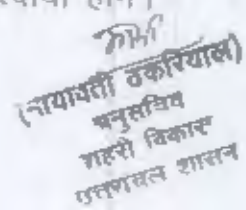 (मायावती ढकरियाल)
अनुसचिव
शहरी विकास
उत्तरांचल शासन